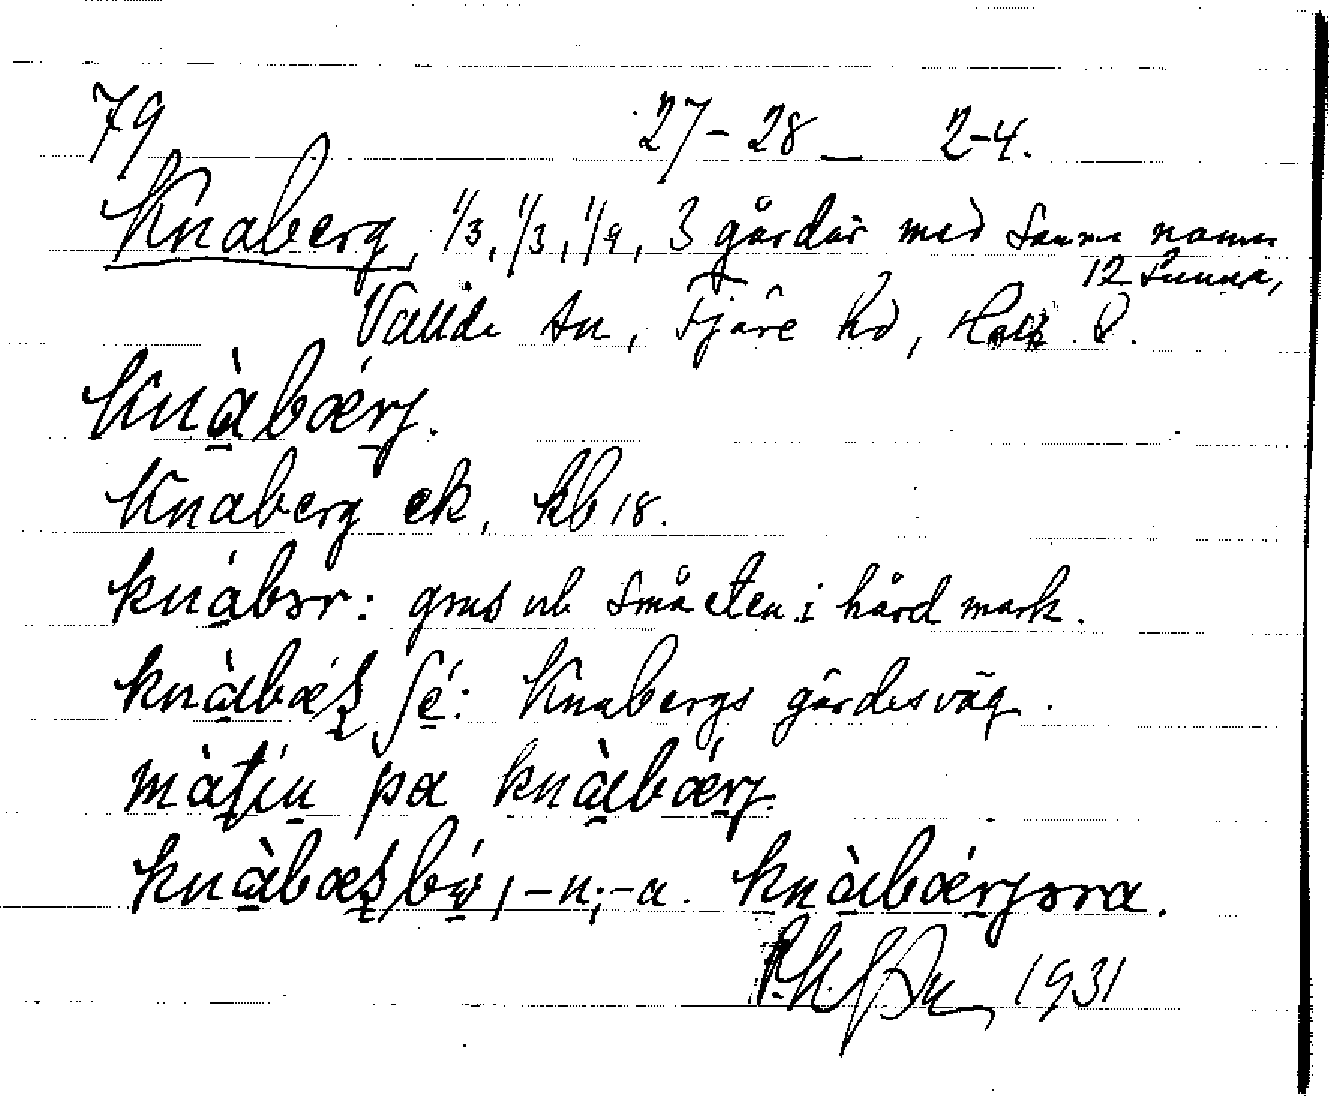 79 27-28 — 2-4.
Knaberg, 1/3, 1/3, 1/9, 3 gårdar med samma namn
12 Sunna,
Vallda sn, Fjäre hd, Hall. l.
knàbǽrj.
Knaberg ek, kb 18.
knábər: grus ub småsten i hård mark.
knàbæş ʃé: Knabergs gärdesväg.
màţin pa knàbǽrj.
knàbæşbú, -n; -a. knàbǽrjəra.
1931